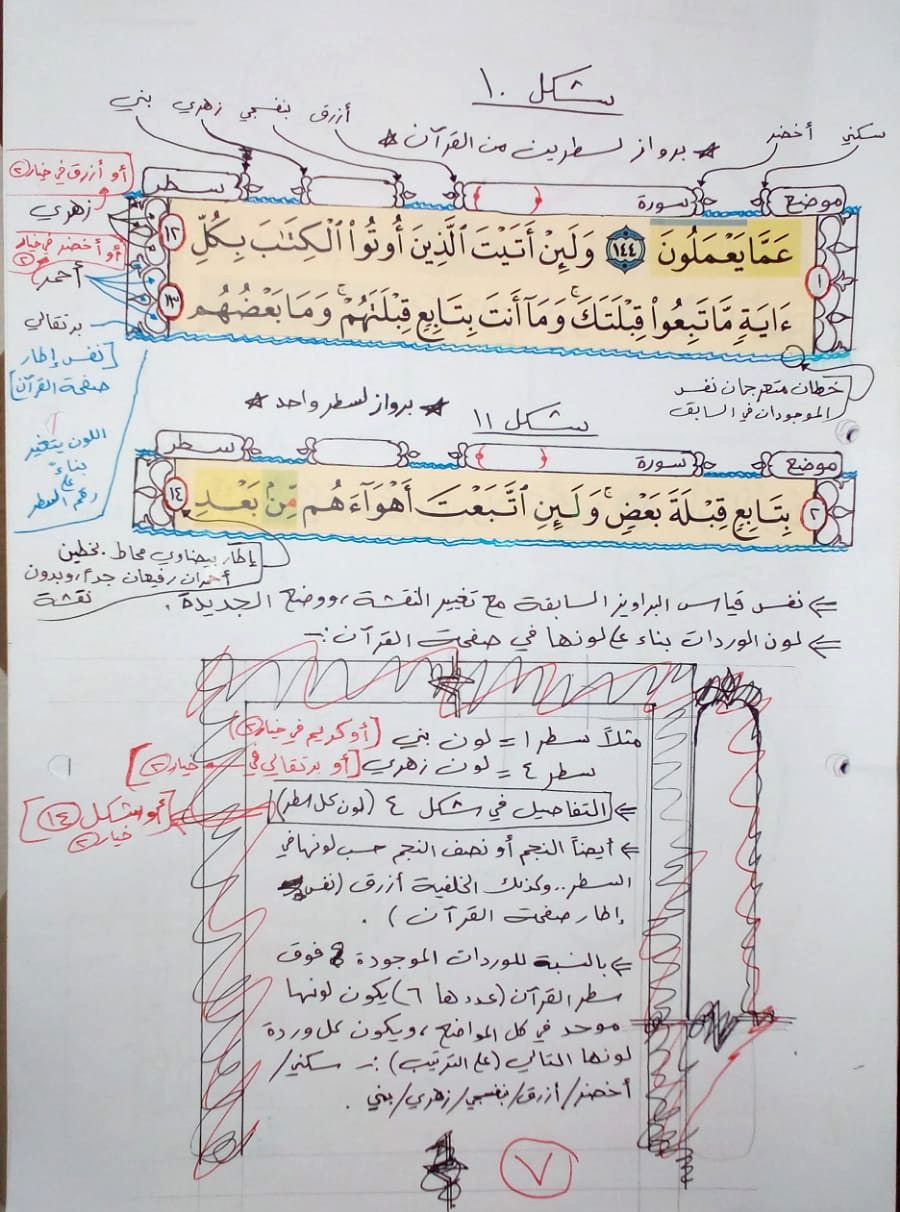 شكل ١٠
★ برواز لسطرين من القرآن ★
سكني
أخضر
أزرق
بنفسجي
زهري
بني
موضع
سورة ( )
سطر
عَمَّا يَعْمَلُونَ ١٤٤ وَلَئِنْ أَتَيْتَ ٱلَّذِينَ أُوتُوا۟ ٱلْكِتَٰبَ بِكُلِّ
١٢
١
ءَايَةٍ مَّا تَبِعُوا۟ قِبْلَتَكَ ۚ وَمَآ أَنتَ بِتَابِعٍ قِبْلَتَهُمْ ۚ وَمَا بَعْضُهُم
١٣
أو أزرق في خيار ٢
زهري
أو أخضر في خيار ٢
أحمر
برتقالي
[نفس إطار
صفحة القرآن]
اللون يتغير
بناءً
على
رقم السطر
خطان متعرجان نفس
الموجودان في السابق
شكل ١١
★ برواز لسطر واحد ★
موضع
سورة ( )
سطر
٢
بِتَابِعٍ قِبْلَةَ بَعْضٍ ۚ وَلَئِنِ ٱتَّبَعْتَ أَهْوَآءَهُم مِّنۢ بَعْدِ
١٤
إطار بيضاوي محاط بخطين
أحمران رفيعان جداً، وبدون
نقشة
⇐ نفس قياس البراويز السابقة مع تغيير النقشة، ووضع الجديدة.
⇐ لون الوردات بناء على لونها في صفحة القرآن :-
مثلاً سطر ١ = لون بني [أو كريم في خيار ٢]
سطر ٤ = لون زهري [أو برتقالي في خيار ٢]
⇐ التفاصيل في شكل ٤ (لون كل سطر)
[أو شكل ١٤
خيار ٢]
⇐ أيضاً النجم أو نصف النجم حسب لونها في
السطر.. وكذلك الخلفية أزرق (نفس
إطار صفحة القرآن).
⇐ بالنسبة للوردات الموجودة فوق
سطر القرآن (عددها ٦) يكون لونها
موحد في كل المواضع، ويكون كل وردة
لونها التالي (على الترتيب) :- سكني/
أخضر/أزرق/بنفسجي/زهري/بني.
٧